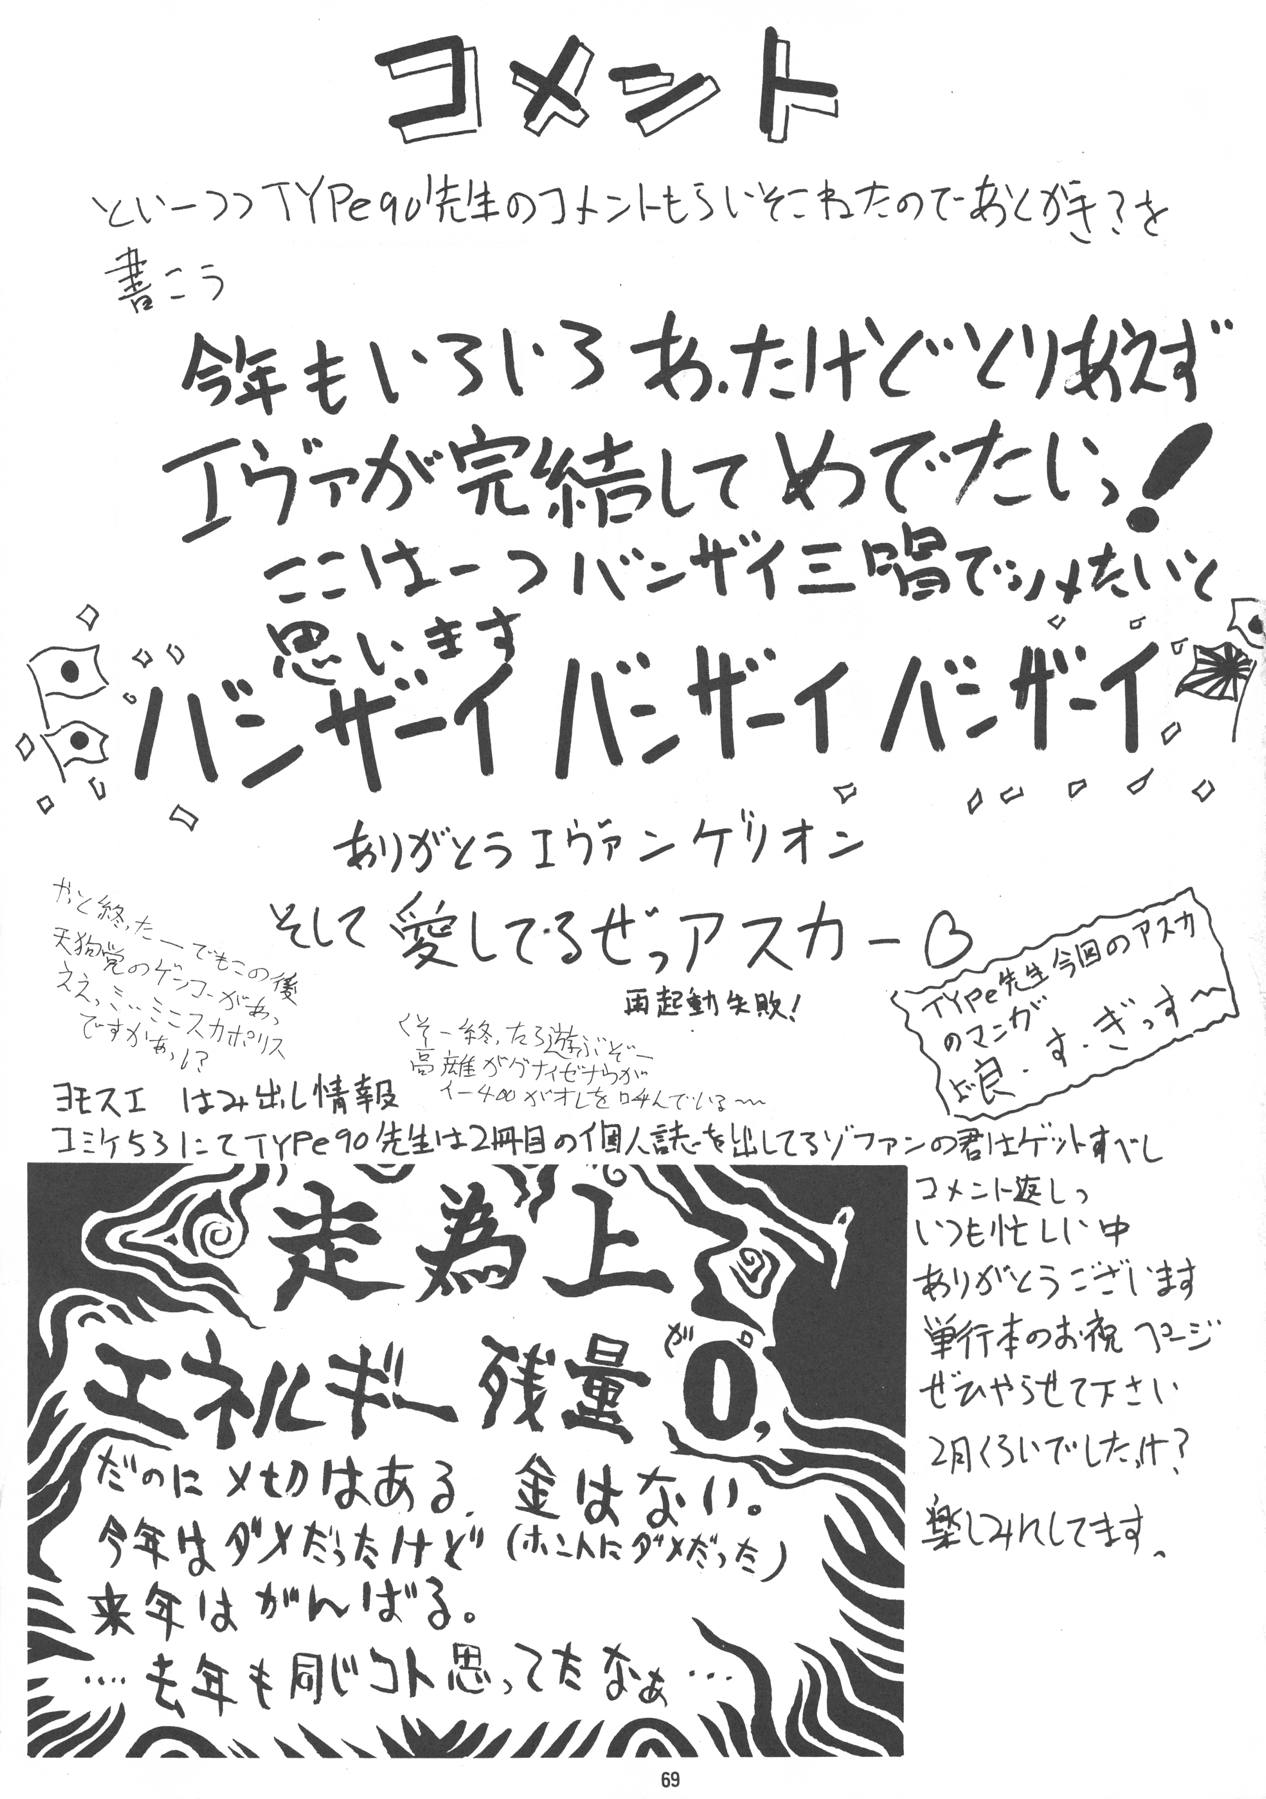 コメント
といーつつTYPe90先生のコメントもらいそこねたのであとがき?を
書こう
今年もいろいろあったけどとりあえず
エヴァが完結してめでたいっ!
ここは一つバンザイ三唱でシメたいと
思います
バンザーイ バンザーイ バンザーイ
ありがとうエヴァンゲリオン
そして愛してるぜっアスカー
再起動失敗!
やっと終ったーでもこの後
天狗党のゲンコーがあっ
ええっミ、ミニスカポリス
ですかぁっ!?
くそー終ったら遊ぶぞー
高雄が
イー400がオレを呼んでいる〜
TYPe先生今回のアスカ
のマンガ
良・す・ぎっす〜
ヨモスエ はみ出し情報
コミケ53にてTYPe90先生は2冊目の個人誌を出してるゾファンの君はゲットすべし
走為上
エネルギー残量が0,
だのに〆切はある、金はない。
今年はダメだったけど(ホントにダメだった)
来年はがんばる。
‥‥去年も同じコト思ってたなぁ‥‥
コメント返しっ
いつも忙しい中
ありがとうございます
単行本のお祝ページ
ぜひやらせて下さい
2月くらいでしたっけ?
楽しみにしてます、
69